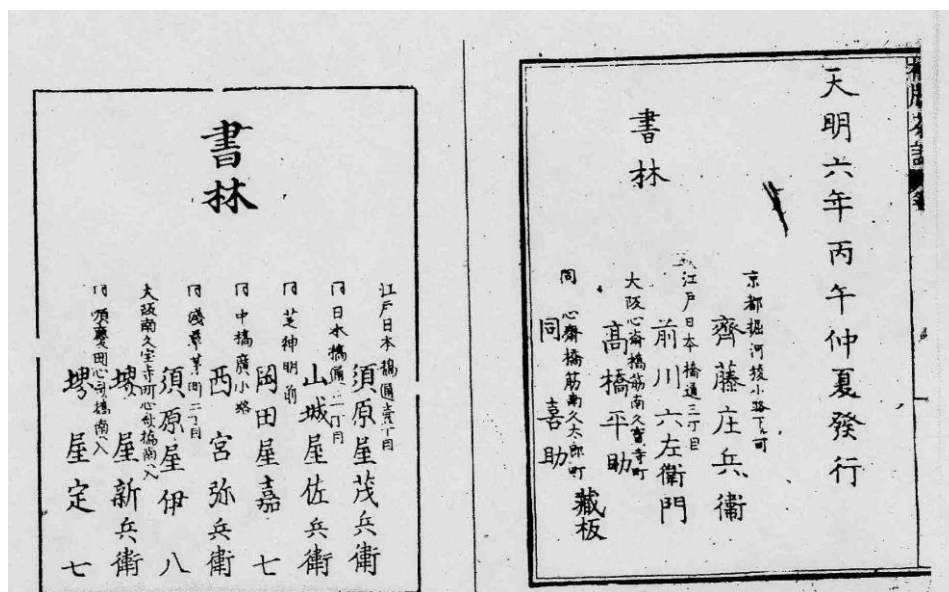 天明六年丙午仲夏發行
書林
京都堀河綾小路下ル町
齊藤庄兵衞
江戸日本橋通三丁目
前川六左衞門
大阪心斎橋筋南久寳寺町
髙橋平助
同 心齋橋筋南久太郎町
同 喜助
藏板
書林
江戸日本橋通壹丁目
須原屋茂兵衛
同日本橋通二丁目
山城屋佐兵衛
同芝神明前
岡田屋嘉七
同中橋廣小路
西宮弥兵衛
同淺草茅町二丁目
須原屋伊八
堺屋新兵衛
堺屋定七